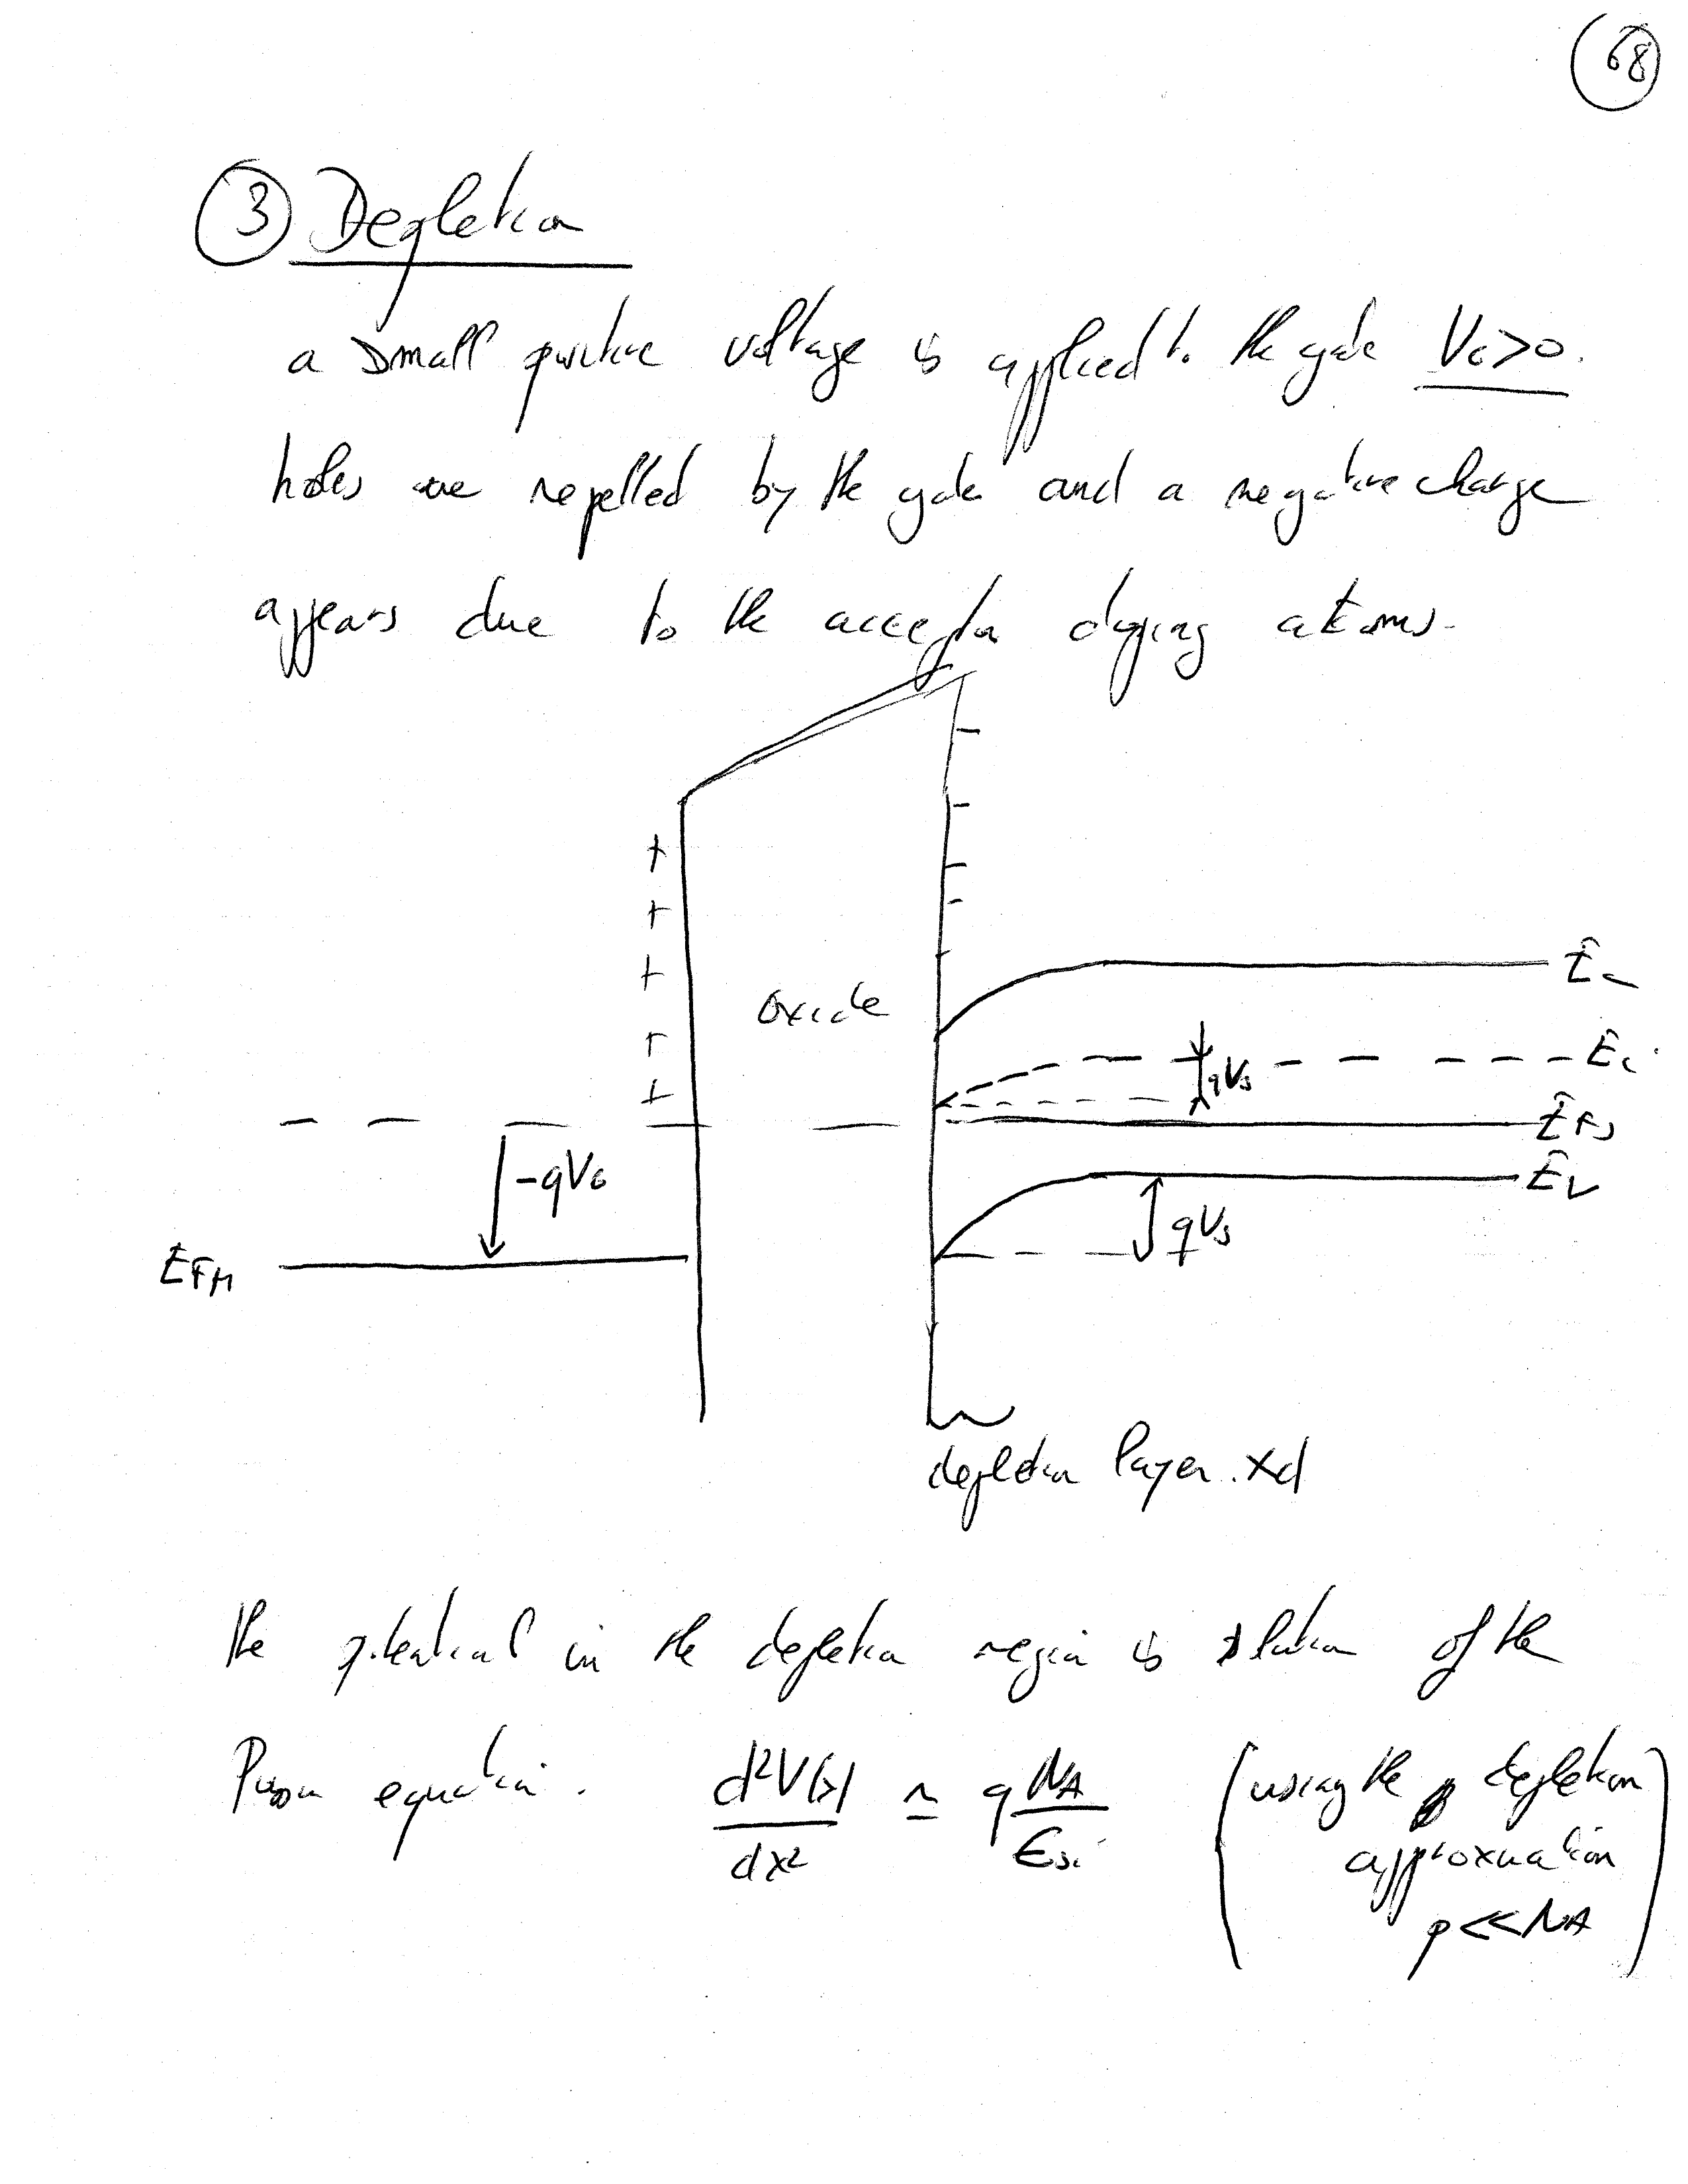 68
③ Depletion
a small positive voltage is applied to the gate VG>0.
holes are repelled by the gate and a negative charge
appears due to the acceptor doping atoms.
+
+
+
+
+
oxide
Ec
Ei
qVs
EFS
-qVG
EV
qVs
EFM
depletion layer. xd
the potential in the depletion region is solution of the
Poisson equation. d²V(x)/dx² ≃ q NA/εSi (using the depletion
approximation
p<<NA)